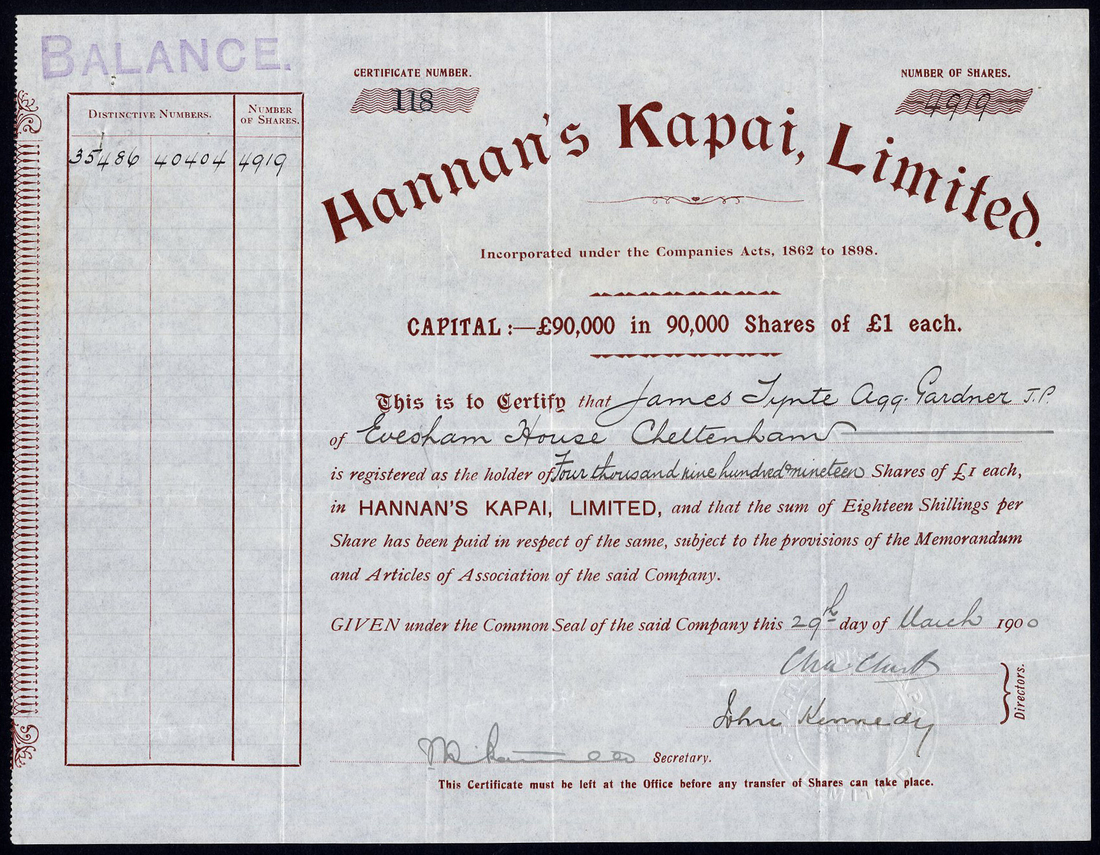 BALANCE.
CERTIFICATE NUMBER.
118
NUMBER OF SHARES.
4919
DISTINCTIVE NUMBERS.
NUMBER OF SHARES.
35486 40404 4919
Hannan's Kapai, Limited.
Incorporated under the Companies Acts, 1862 to 1898.
CAPITAL :—£90,000 in 90,000 Shares of £1 each.
This is to Certify that James Tynte Agg. Gardner J.P.
of Evesham House Cheltenham
is registered as the holder of Four thousand nine hundred & nineteen Shares of £1 each,
in HANNAN'S KAPAI, LIMITED, and that the sum of Eighteen Shillings per
Share has been paid in respect of the same, subject to the provisions of the Memorandum
and Articles of Association of the said Company.
GIVEN under the Common Seal of the said Company this 29th day of March 1900
John Kennedy
Directors.
Secretary.
This Certificate must be left at the Office before any transfer of Shares can take place.